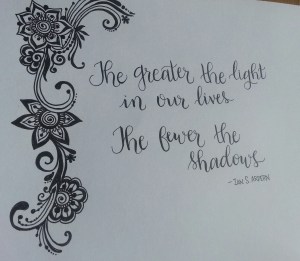 The greater the light
in our lives
The fewer the
shadows